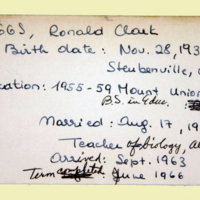 GGS, Ronald Clark
Birth date: Nov. 28, 193
Steubenville,
cation: 1955-59 Mount Union
B.S. in Educ.
Married: Aug. 17, 19
Teacher of biology, Al
Arrived: Sept. 1963
Term completed: June 1966